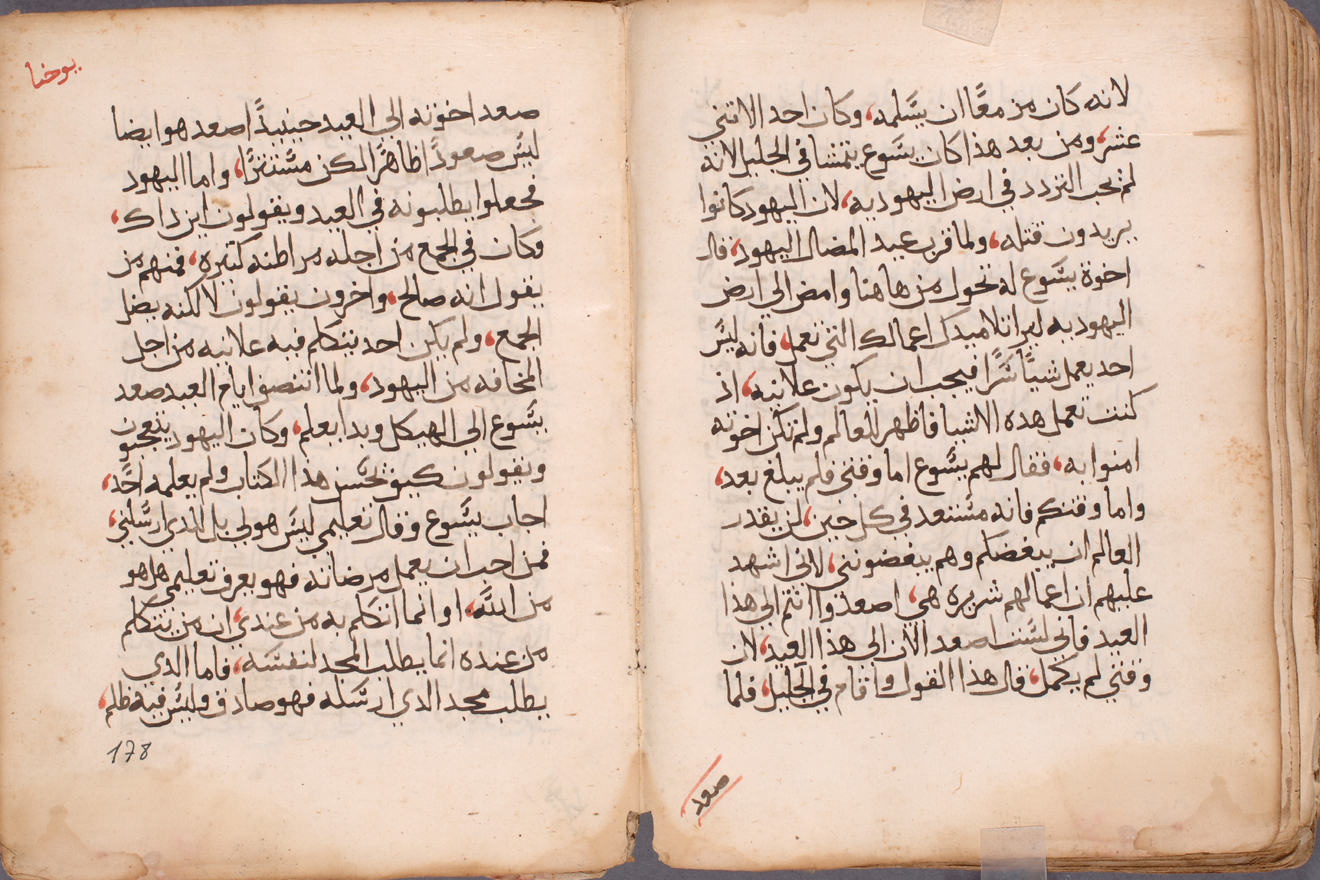 لانه كان مزمعًا ان يسلمه، وكان احد الاتني
عشر، ومن بعد هذا كان يسوع يتمشا في الجليل لانه
لم يحب التردد في ارض اليهوديه، لان اليهود كانوا
يريدون قتله، ولما قرب عيد المضال اليهود، قال
اخوة يسوع له تحول من هاهنا وامض الي ارض
اليهوديه ليرا تلاميدك اعمالك التي تعمل، فانه ليس
احد يعمل شياً سرًا فيحب ان يكون علانيه، اذ
كنت تعمل هده الاشيا فاظهر للعالم ولم تكن اخوته
امنوا به، فقال لهم يسوع اما وقتي فلم يبلغ بعد،
واما وقتكم فانه مستعد في كل حين، لن يقدر
العالم ان يبغضكم وهم يبغضونني، لاني اشهد
عليهم ان اعمالهم شريره هي، اصعدوا انتم الي هذا
العيد فاني لست اصعد الان الي هذا العيد، لان
وقتي لم يكمل، قال هذا القول واقام في الجليل، فلما
صعد
يوحنا
صعد اخوته الي العيد حينيذً اصعد هو ايضا
ليس صعودًا ظاهرًا لكن مستترًا، واما اليهود
فجعلوا يطلبونه في العيد ويقولون اين داك،
وكان في الجمع من اجله مراطنه كتيره، فمنهم من
يقول انه صالح، واخرون يقولون لا لكنه يضل
الجمع، ولم يكن احد يتكلم فيه علانيه من اجل
المخافه من اليهود، ولما انتصف ايام العيد صعد
يسوع الي الهيكل وبدا يعلم، وكان اليهود يتعجبون
ويقولون كيف يحسن هذا الكتاب ولم يعلمه احد،
اجاب يسوع وقال تعليمي ليس هو لي بل للدي ارسلني،
فمن احب ان يعمل مرضاته فهو يعرف تعليمي هل هو
من الله، او انما اتكلم به من عندي، ان من يتكلم
من عنده انما يطلب المجد لنفسه، فاما الدي
يطلب مجد الدي ارسله فهو صادق وليس فيه ظلم،
178